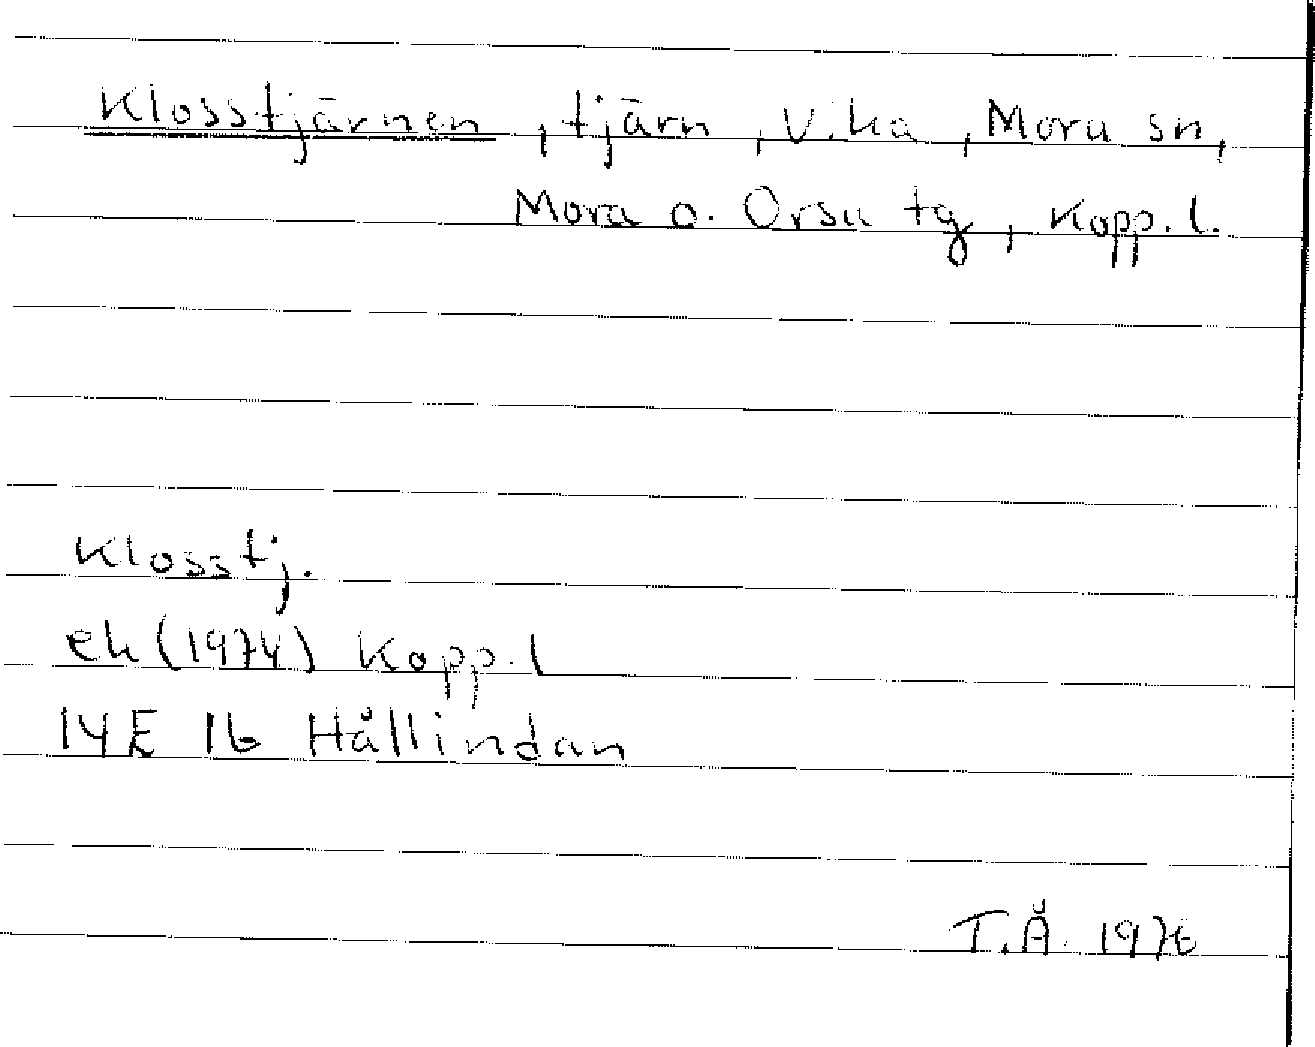 Klosstjärnen, tjärn, Vika, Mora sn,
Mora o. Orsa tg, Kopp. l.
Klosstj.
ek (1974) Kopp. l
14E 1b Hållindan
T.Å. 1976